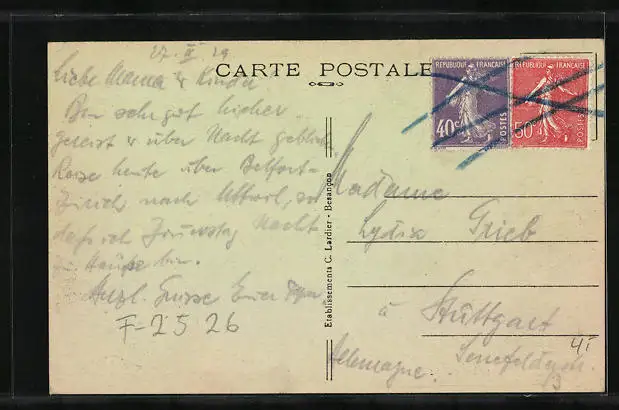 27. II 29
Liebe Mama & Kinder
Bin sehr gut hieher
gereist & über Nacht geblieb.
Reise heute über Belfort-
Zürich nach
daß ich Nacht
zu Hause bin.
Herzl. Grüsse Euer
F-2526
CARTE POSTALE
REPUBLIQUE FRANÇAISE
40c
POSTES
REPUBLIQUE FRANÇAISE
50c
POSTES
Etablissements C. Lardier - Besançon
Madame
Lydia Grieb
à Stuttgart
Allemagne.